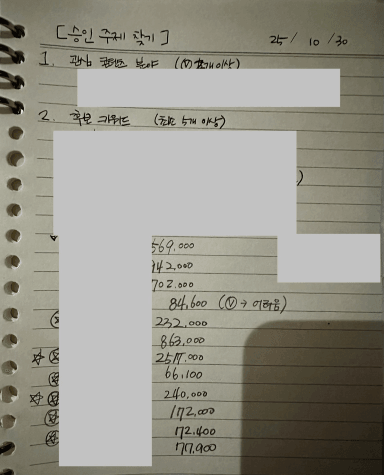 [승인 주제 찾기] 25/10/30
1. 관심 콘텐츠 분야 (개이상)
2. 후보 키워드 (최소 5개이상)
)
569.000
942.000
702.000
84,600 (Ⓥ → 어려움)
232.000
863.000
☆ 2517.000
66,100
☆ 240.000
172.000
72.400
77.900